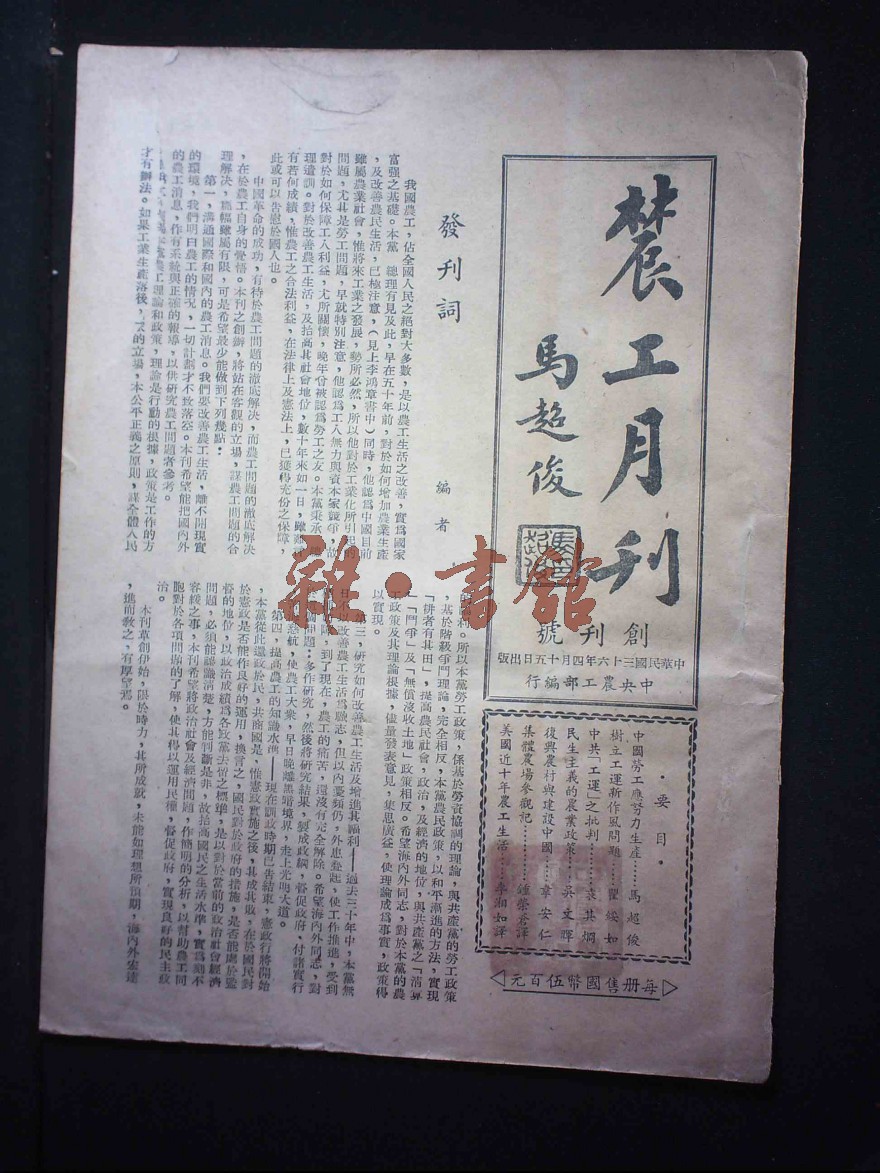 農工月刊
馬超俊
創刊號
中華民國三十六年四月十五日出版
中央農工部編行
·要目·
中國勞工應努力生產……馬超俊
樹立工運新作風問題……瞿綏如
中共「工運」之批判……袁其炯
民生主義的農業政策……吳文暉
復興農村與建設中國……章安仁
集體農場參觀記……鍾榮蒼譯
美國近十年農工生活……李湘如譯
每册售國幣伍百元
發刊詞
編者
我國農工，佔全國人民之絕對大多數，是以農工生活之改善，實爲國家
富强之基礎。本黨 總理有見及此，早在五十年前，對於如何增加農業生產
，及改善農民生活，已極注意，（見上李鴻章書中）同時，他認爲中國目前
雖屬農業社會，惟將來工業之發展，勢所必然，所以他對於工業化所引起的
問題，尤其是勞工問題，早就特別注意，他認爲工人無力與資本家競爭，故
對於如何保障工人利益，尤所關懷，晚年曾被認爲勞工之友。本黨秉承
理遺訓。對於改善農工生活，及抬高其社會地位，數十年來如一日，雖
有若何成績，惟農工之合法利益，在法律上及憲法上，已獲得充份之保障，
此或可以告慰於國人也。
中國革命的成功，有待於農工問題的澈底解決，而農工問題的澈底解決
，在於農工自身的覺悟。本刊之創辦，將站在客觀的立場，謀農工問題的合
理解決，篇幅雖屬有限，可是希望最少能做到下列幾點：
第一，溝通國際和國內的農工消息。我們要改善農工生活，離不開現實
的環境，我們明白農工的情況，一切計劃才不致落空。本刊希望能把國內外
的農工消息，作有系統與正確的報導，以供研究農工問題者參考。
農工理論和政策，理論是行動的根據，政策是工作的方
才有辦法。如果工業生產落後，的立場，本公平正義之原則，謀全體人民
利。所以本黨勞工政策，係基於勞資協調的理論，與共產黨的勞工政策
，基於階級爭鬥理論，完全相反，本黨農民政策，以和平漸進的方法，實現
「耕者有其田」，提高農民社會，政治，及經濟的地位，與共產黨之「清算
」「鬥爭」及「無償沒收土地」政策相反。希望海內外同志，對於本黨的農
工政策及其理論根據，儘量發表意見，集思廣益，使理論成爲事實，政策得
以實現。
第三，研究如何改善農工生活及增進其福利——過去三十年中，本黨無
日不以改善農工生活爲職志，但以內憂頻仍，外患叠起，使工作推進，受到
，到了現在，農工的痛苦，還沒有完全解除。希望海內外同志，對
問題：多作研究，然後將研究結果，製成政綱，督促政府，付諸實行
慈航，使農工大衆，早日晚離黑暗境界，走上光明大道。
第四，提高農工的知識水準——現在訓政時期已告結束，憲政行將開始
，本黨從此還政於民，共商國是，惟憲政實施之後，其成其敗，在於國民對
於憲政是否能作良好的運用，換言之，國民對於政府的措施，是否能處於監
督的地位，以政治成績爲各政黨去留之標準，是以對於當前的政治社會經濟
問題，必須能認識清楚，方能判斷是非，故抬高國民之生活水準，實爲刻不
容緩之事，本刊希望將政治社會及經濟問題，作簡明的分析，以幫助農工同
胞對於各項問題的了解，使其得以運用民權，督促政府，實現良好的民主政
治。
本刊草創伊始，限於時力，其所成就，未能如理想所預期，海內外宏達
，進而教之，有厚望焉。
雜·書館